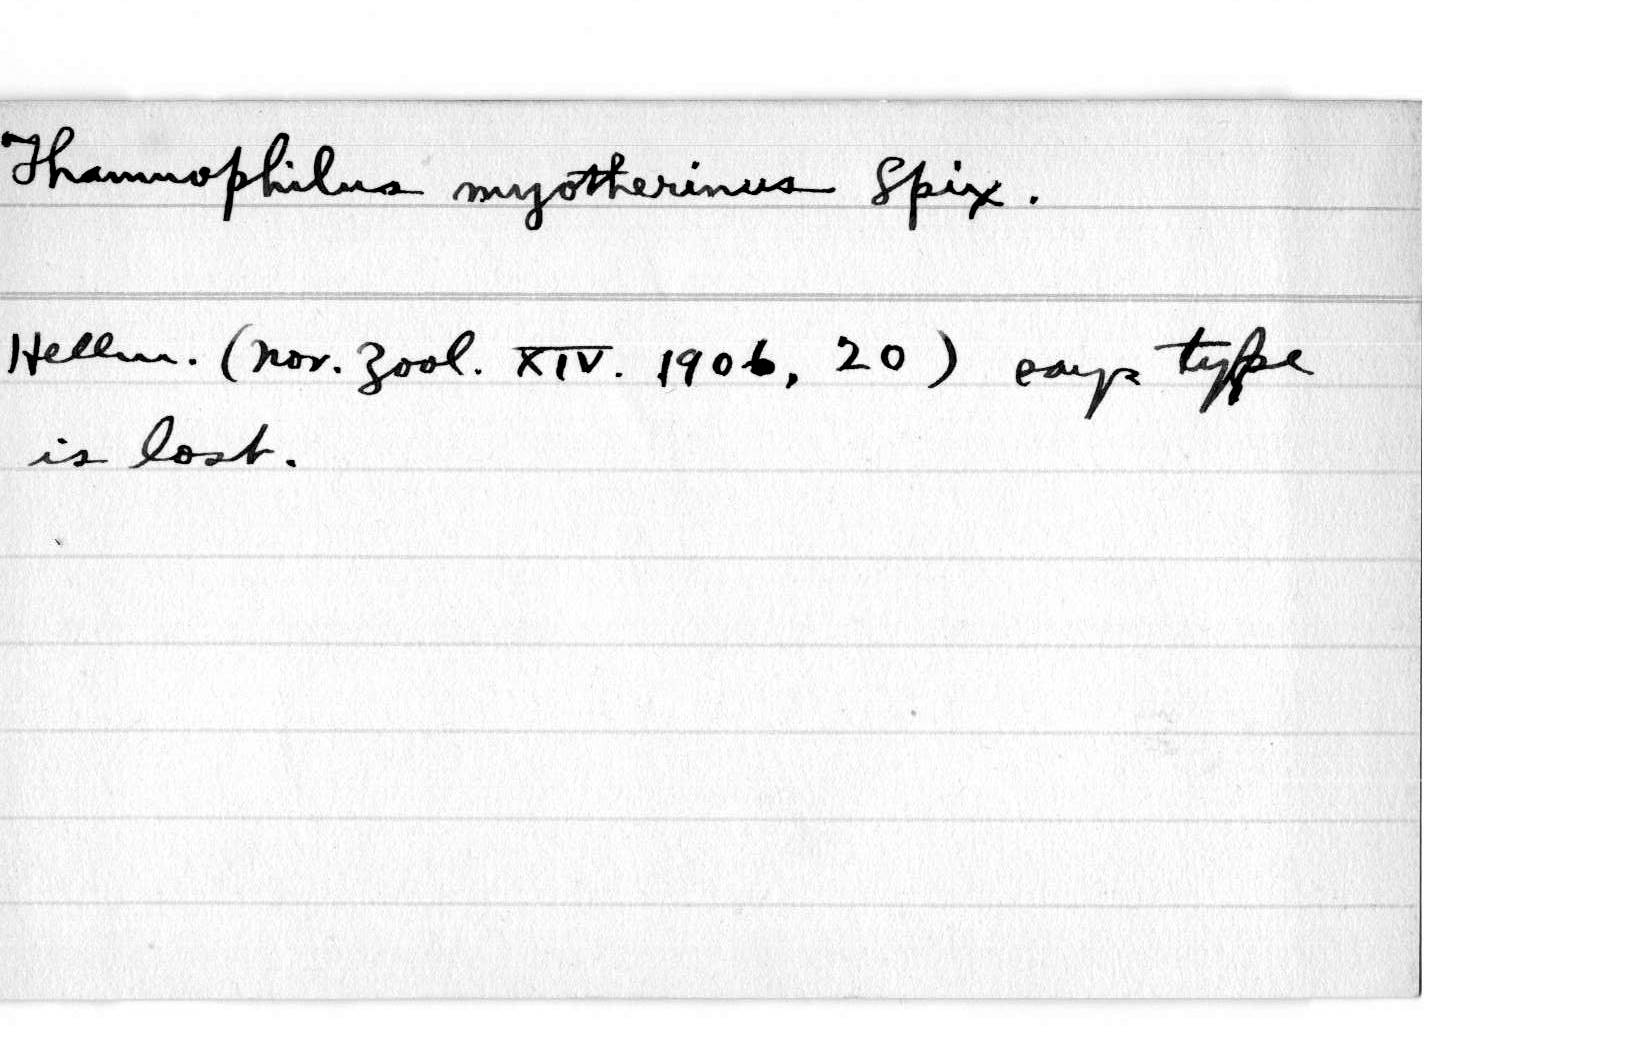 Thamnophilus myotherinus Spix.
Hellm. (Nov. Zool. XIV. 1906, 20) says type
is lost.